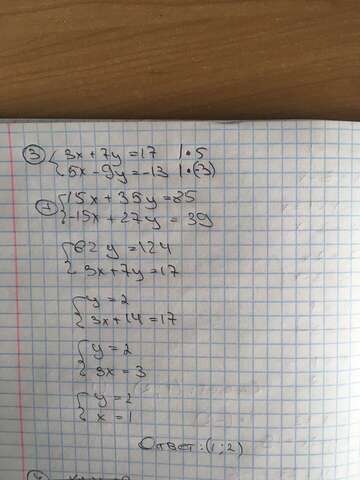 ③ {3x + 7y = 17 |•5
{5x - 9y = -13 |•(-3)
{15x + 35y = 85
{-15x + 27y = 39
{62y = 124
{3x + 7y = 17
{y = 2
{3x + 14 = 17
{y = 2
{3x = 3
{y = 2
{x = 1
Ответ: (1; 2)